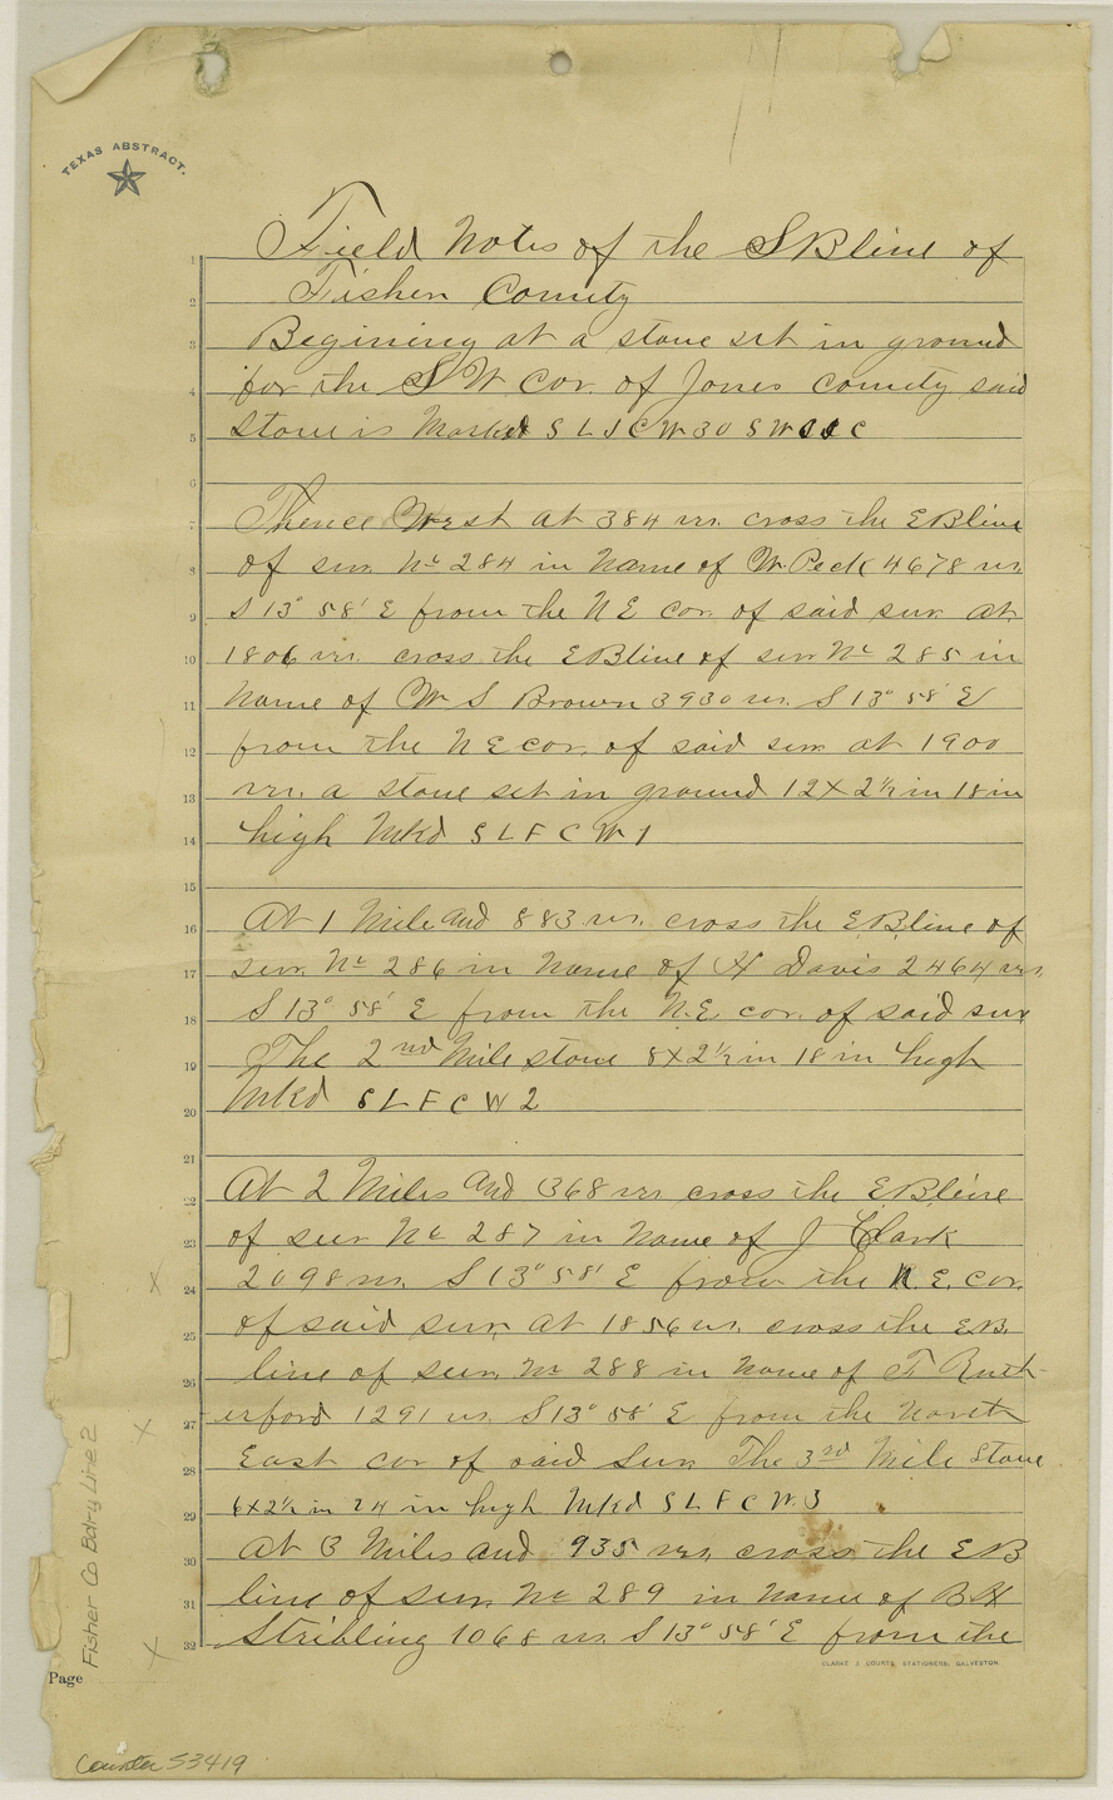 TEXAS ABSTRACT.
Field Notes of the S B line of
Fisher County
Begining at a stone set in ground
for the S W Cor. of Jones County said
Stone is Marked S L J C W 30 S W J C
Thence West at 384 vrs. cross the E B line
of sur. No 284 in Name of W. Peck 4678 vrs
S 13° 58' E from the N E cor. of said sur. at
1806 vrs. cross the E B line of sur No 285 in
Name of W S Brown 3930 vrs. S 13° 58' E
from the N E cor. of said sur at 1900
vrs. a stone set in ground 12 X 2½ in 18 in
high Mkd S L F C W 1
At 1 Mile and 883 vrs. cross the E.B. line of
sur. No 286 in Name of H Davis 2464 vrs.
S 13° 58' E from the N.E. cor. of said sur
The 2nd Mile stone 8 X 2½ in 18 in high
Mkd S L F C W 2
At 2 Miles and 368 vrs. cross the E.B. line
of sur No 287 in Name of J Clark
2098 vrs. S 13° 58' E from the N. E. cor.
of said sur. at 1856 vrs. cross the E B.
line of sur. No 288 in Name of T Ruth-
erford 1291 vrs. S 13° 58' E from the North
East cor of said sur. The 3rd Mile Stone
6 X 2½ in 24 in high Mkd S L F C W. 3
At 3 Miles and 935 vrs. cross the E B
line of sur. No 289 in Name of B H
Stribling 1068 vrs. S 13° 58' E from the
1
2
3
4
5
6
7
8
9
10
11
12
13
14
15
16
17
18
19
20
21
22
23
24
25
26
27
28
29
30
31
32
x
x
x
Fisher Co Bdry Line 2
Page
CLARKE & COURTS, STATIONERS, GALVESTON
Counter 53419